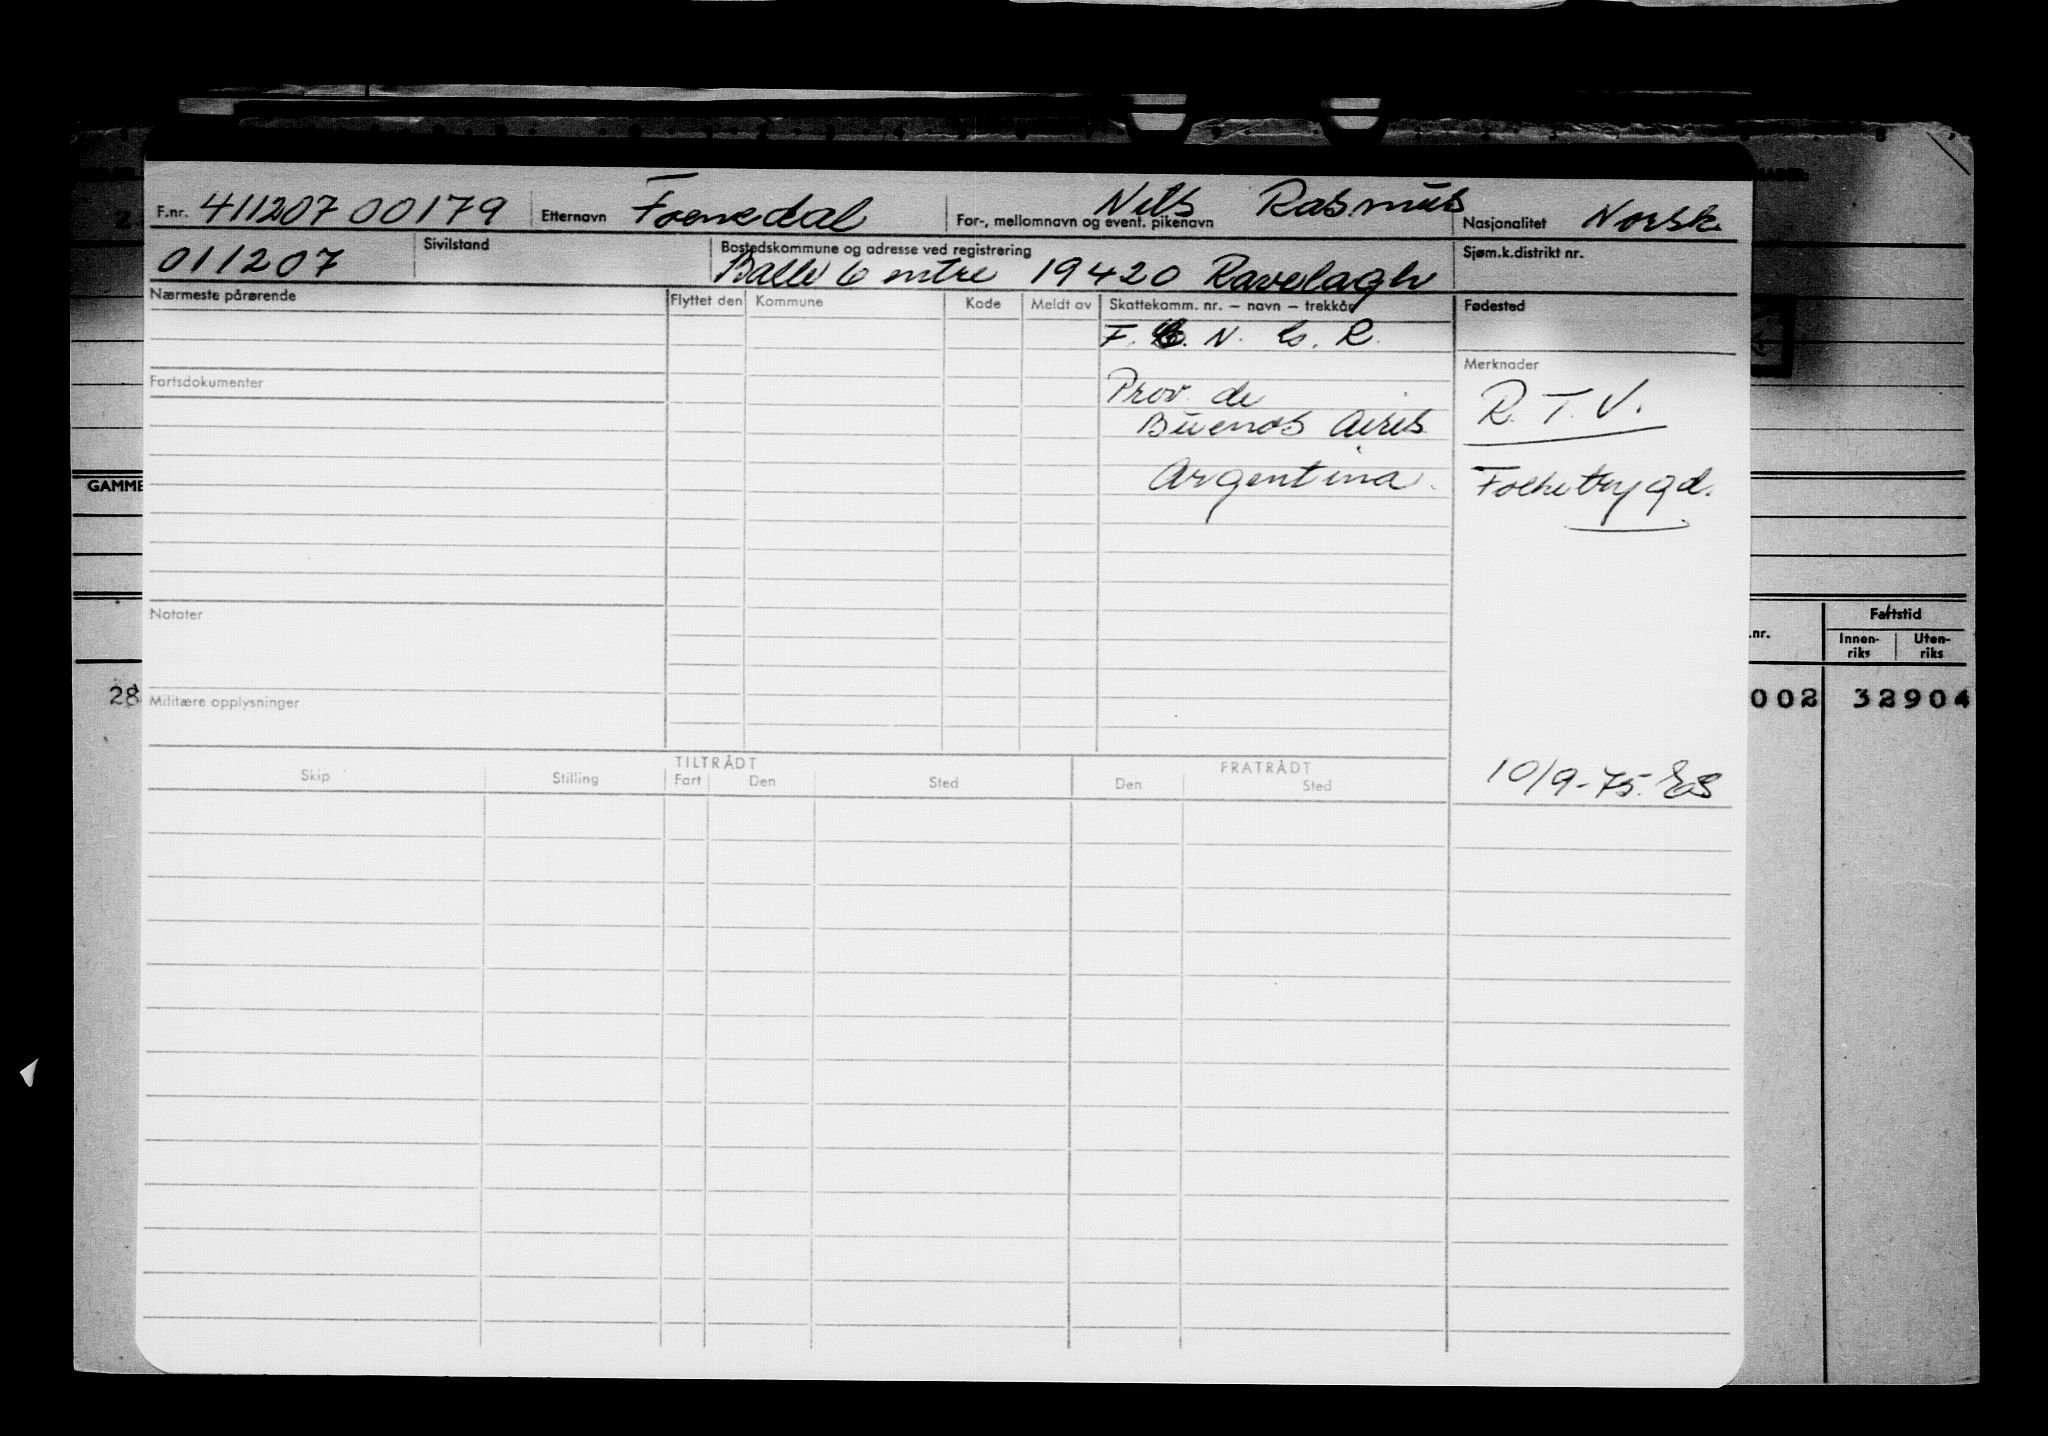 F.nr. 411207 00179 Etternavn Foenedal For-, mellomnavn og event. pikenavn Nils Rasmus Nasjonalitet Norsk
011207 Sivilstand Bostedskommune og adresse ved registrering 19420 Sjøm.k.distrikt nr.
Nærmeste pårørende Flyttet den Kommune Kode Meldt av Skattekomm. nr. – navn – trekkår Fødested
F. N. G. R.
Merknader
Fartsdokumenter
Prov. de
Buenos Aires
Argentina.
R. T. V.
Folketrygd.
GAMME
Notater
Militære opplysninger
Fartstid
.nr. Innen-riks Uten-riks
28 002 32904
TILTRÅDT FRATRÅDT
Skip Stilling Fart Den Sted Den Sted
10/9-75. ES